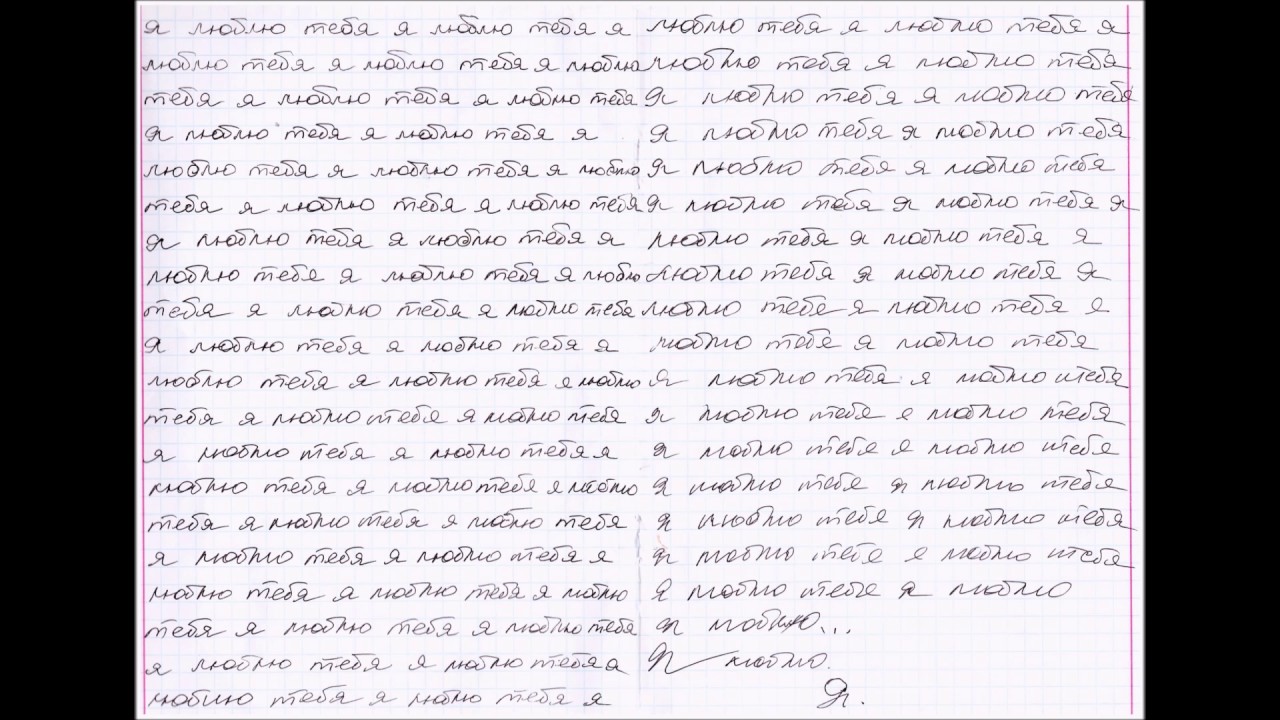 я люблю тебя я люблю тебя я
люблю тебя я люблю тебя я люблю
тебя я люблю тебя я люблю тебя
я люблю тебя я люблю тебя я
люблю тебя я люблю тебя я люблю
тебя я люблю тебя я люблю тебя
я люблю тебя я люблю тебя я
люблю тебя я люблю тебя я люблю
тебя я люблю тебя я люблю тебя
я люблю тебя я люблю тебя я
люблю тебя я люблю тебя я люблю
тебя я люблю тебя я люблю тебя
я люблю тебя я люблю тебя я
люблю тебя я люблю тебя я люблю
тебя я люблю тебя я люблю тебя
я люблю тебя я люблю тебя я
люблю тебя я люблю тебя я люблю
тебя я люблю тебя я люблю тебя
я люблю тебя я люблю тебя я
люблю тебя я люблю тебя я
люблю тебя я люблю тебя я
люблю тебя я люблю тебя
я люблю тебя я люблю тебя
я люблю тебя я люблю тебя
я люблю тебя я люблю тебя
я люблю тебя я люблю тебя я
люблю тебя я люблю тебя я
люблю тебя я люблю тебя я
люблю тебя я люблю тебя я
люблю тебя я люблю тебя
я люблю тебя я люблю тебя
я люблю тебя я люблю тебя
я люблю тебя я люблю тебя
я люблю тебя я люблю тебя
я люблю тебя я люблю тебя
я люблю тебя я люблю тебя
я люблю тебя я люблю
я люблю...
Я люблю.
Я.